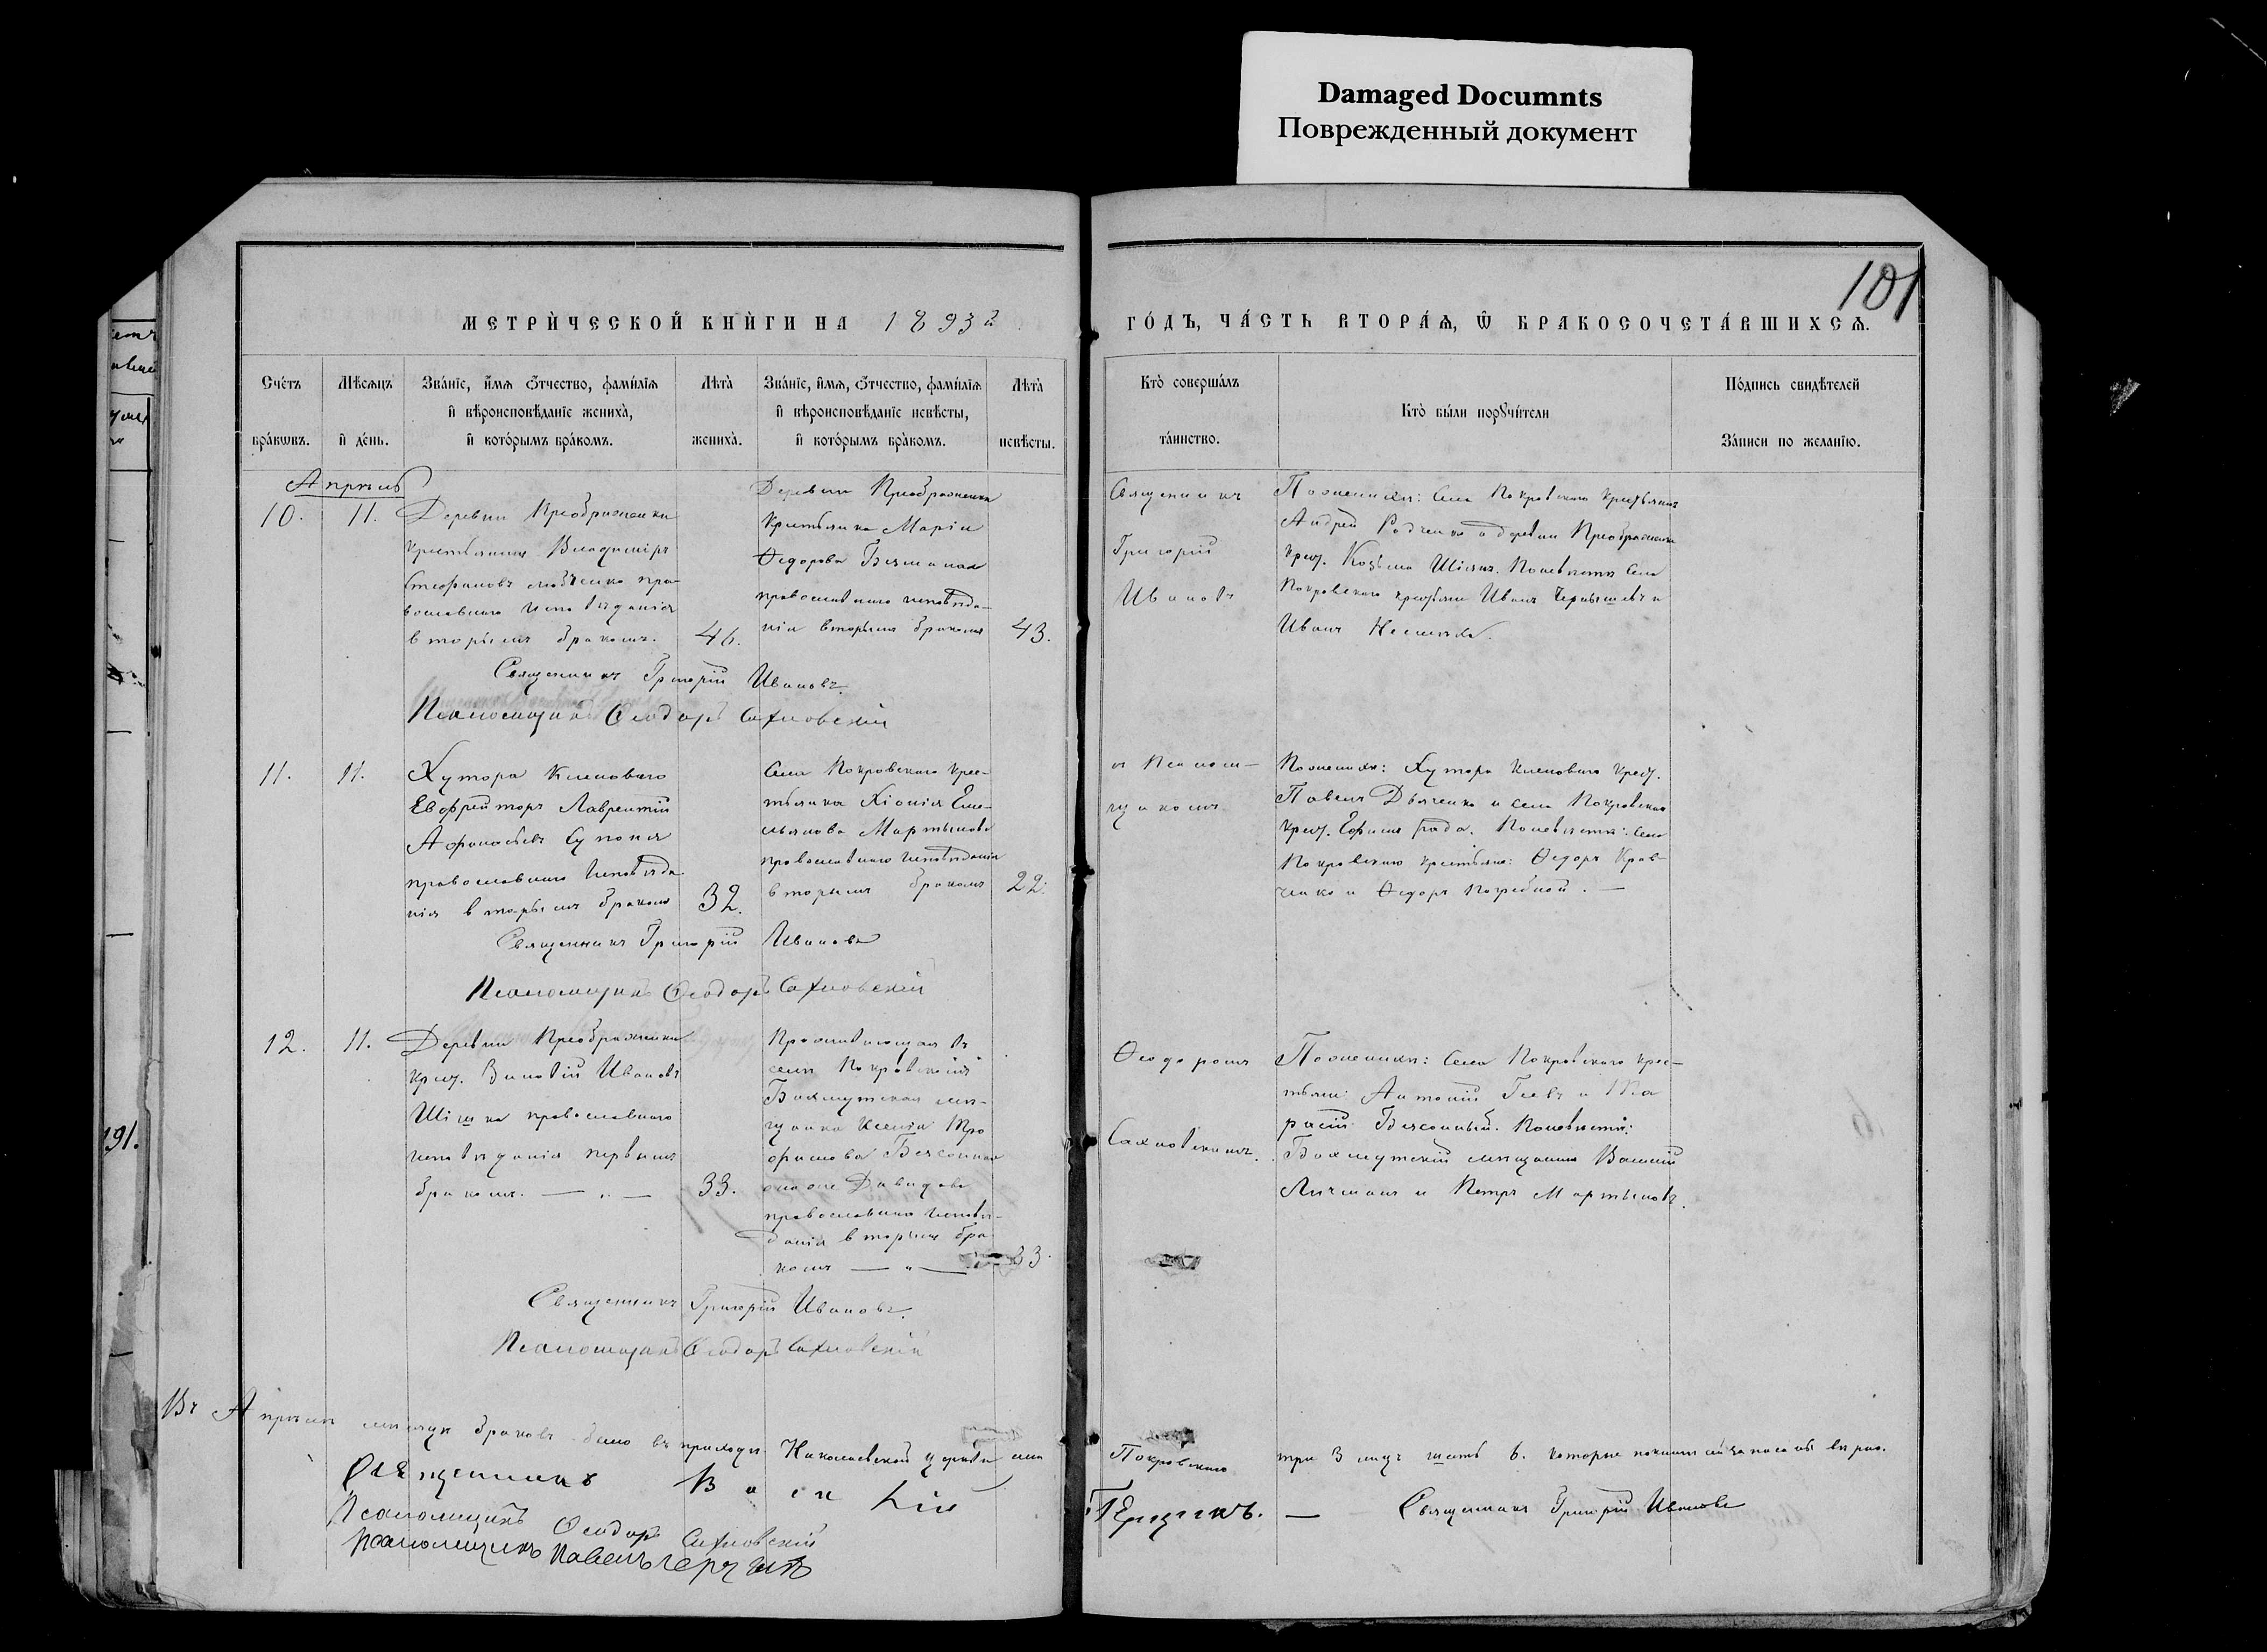 Damaged Documnts
Поврежденный документ
101
МЕТРИ́ЧЕСКОЙ КНИ́ГИ НА 1893 г.
ГО́ДЪ, ЧА́СТЬ ВТОРА́Ѧ, Ѿ БРАКОСОЧЕТА́ВШИХСѦ.
Сче́тъ бра́кѡвъ.
Мѣ́сѧцъ и҆ де́нь.
Зва́нїе, и҆́мѧ ѻ҆́тчество, фами́лїѧ
и҆ вѣроисповѣ́данїе жениха̀,
и҆ кото́рымъ бра́комъ.
Лѣта̀ жениха̀.
Зва́нїе, и҆́мѧ, ѻ҆́тчество, фами́лїѧ
и҆ вѣроисповѣ́данїе невѣ́сты,
и҆ кото́рымъ бра́комъ.
Лѣта̀ невѣ́сты.
Кто̀ соверша́лъ
та́инство.
Кто̀ бы́ли порꙋчи́тели
По́дпись свидѣ́телей
За́писи по жела́нїю.
Апрѣль
10.
11.
Деревни Преображенки
крестьянинъ Владиміръ
Стефановъ пра-
вославнаго исповѣданія
вторымъ бракомъ.
46.
Деревни Преображенки
Крестьянка Марія
Ѳедорова
православнаго исповѣда-
нія вторымъ бракомъ
43.
Священникъ
Григорій
Ивановъ
По женихѣ: Села Покровскаго крестьянинъ
Андрей Радченко и деревни Преображенки
крест. Козьма Шіянъ. По невѣстѣ: Села
Покровскаго крестьяне Иванъ Чернышевъ и
Иванъ
Священникъ Григорій Ивановъ.
Псаломщикъ Ѳеодоръ Сахновскій
11.
11.
Хутора Кленоваго
Евфрейторъ Лаврентій
Афанасьевъ Супоня
православнаго исповѣда-
нія вторымъ бракомъ
32.
Села Покровскаго крес-
тьянка Хіонія Еме-
льянова Мартынова
православнаго исповѣданія
вторымъ бракомъ
22.
съ Псалом-
щикомъ
По женихѣ: Хутора Кленоваго крест.
Павелъ Дьяченко и села Покровскаго
крест. Ефимъ По невѣстѣ: Села
Покровскаго крестьяне: Ѳедоръ Крав-
ченко и Ѳедоръ Погребной. —
Священникъ Григорій Ивановъ
Псаломщикъ Ѳеодоръ Сахновскій
12.
11.
Деревни Преображенки
крест. Зиновій Ивановъ
православнаго
исповѣданія первымъ
бракомъ. — „ —
33.
Проживающая въ
селѣ Покровскомъ
Бахмутская мѣ-
щанка Ксенія Тро-
фимова
онаже Давидова
православнаго исповѣ-
данія вторымъ бра-
комъ — „ —
33.
Ѳеодоромъ
Сахновскимъ.
По женихѣ: Села Покровскаго крес-
тьяне: Антоній и Та-
расій По невѣстѣ:
Бахмутскій мѣщанинъ Василій
Личманъ и Петръ Мартыновъ.
Священникъ Григорій Ивановъ.
Псаломщикъ Ѳеодоръ Сахновскій
Въ Апрѣлѣ мѣсяцѣ браковъ было въ приходѣ Николаевской церкви села Покровскаго три 3 лицъ шесть 6.
Священникъ Василій
Священникъ Григорій Ивановъ
Псаломщикъ Ѳеодоръ Сахновскій
Псаломщикъ Павелъ
191.